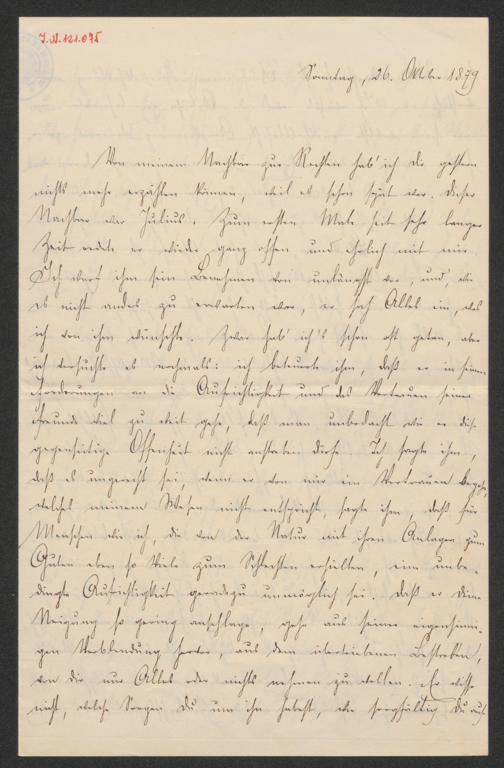 I.N. 121.075
Sonntag, 26. Oktober 1879
Von meinem Nachbar zur Rechten hab' ich dir gestern
nichts mehr erzählen können, weil es schon spät war. Dieser
Nachbar war Julius. Zum ersten Male seit sehr langer
Zeit redete er wieder ganz offen und ehrlich mit mir.
Ich warf ihm sein Benehmen von vor, und, wie
es nicht anders zu erwarten war, er sah Alles ein, was
ich von ihm wünschte. Zwar hab' ich's schon oft getan, aber
ich versuchte es nochmals: ich beteuerte ihm, daß er in seinen
Forderungen an die Aufrichtigkeit und das Vertrauen seiner
Freunde viel zu weit gehe, daß man unbedacht wie er die
gegenseitige Offenheit nicht dürfe. Ich sagte ihm,
daß es ungerecht sei, wenn er von mir ein Vertrauen begehre,
welches meinem Wesen nicht entspricht, sagte ihm, daß für
Menschen wie ich, die von der Natur mit ihren Anlagen zum
Guten eben so Viele zum Schlechten erhielten, eine unbe-
dingte Aufrichtigkeit geradezu unmöglich sei. Daß er Deine
Neigung so gering anschlage, gehe aus seiner eigensinni-
gen Verblendung hervor, aus dem übertriebenen Bestreben,
von dir nur Alles oder nichts nehmen zu wollen. Er wisse
nicht, welche Sorgen Du um ihn habest, wie sorgfältig Du auf